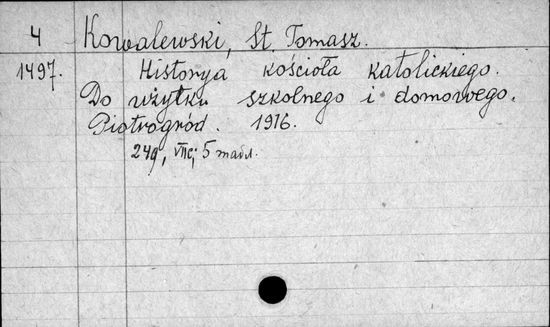 4 Kowalewski, St. Tomasz.
1497. Historya kościoła katolickiego.
Do użytku szkolnego i domowego.
Piotrogród. 1916.
249, VIIс; 5 табл.